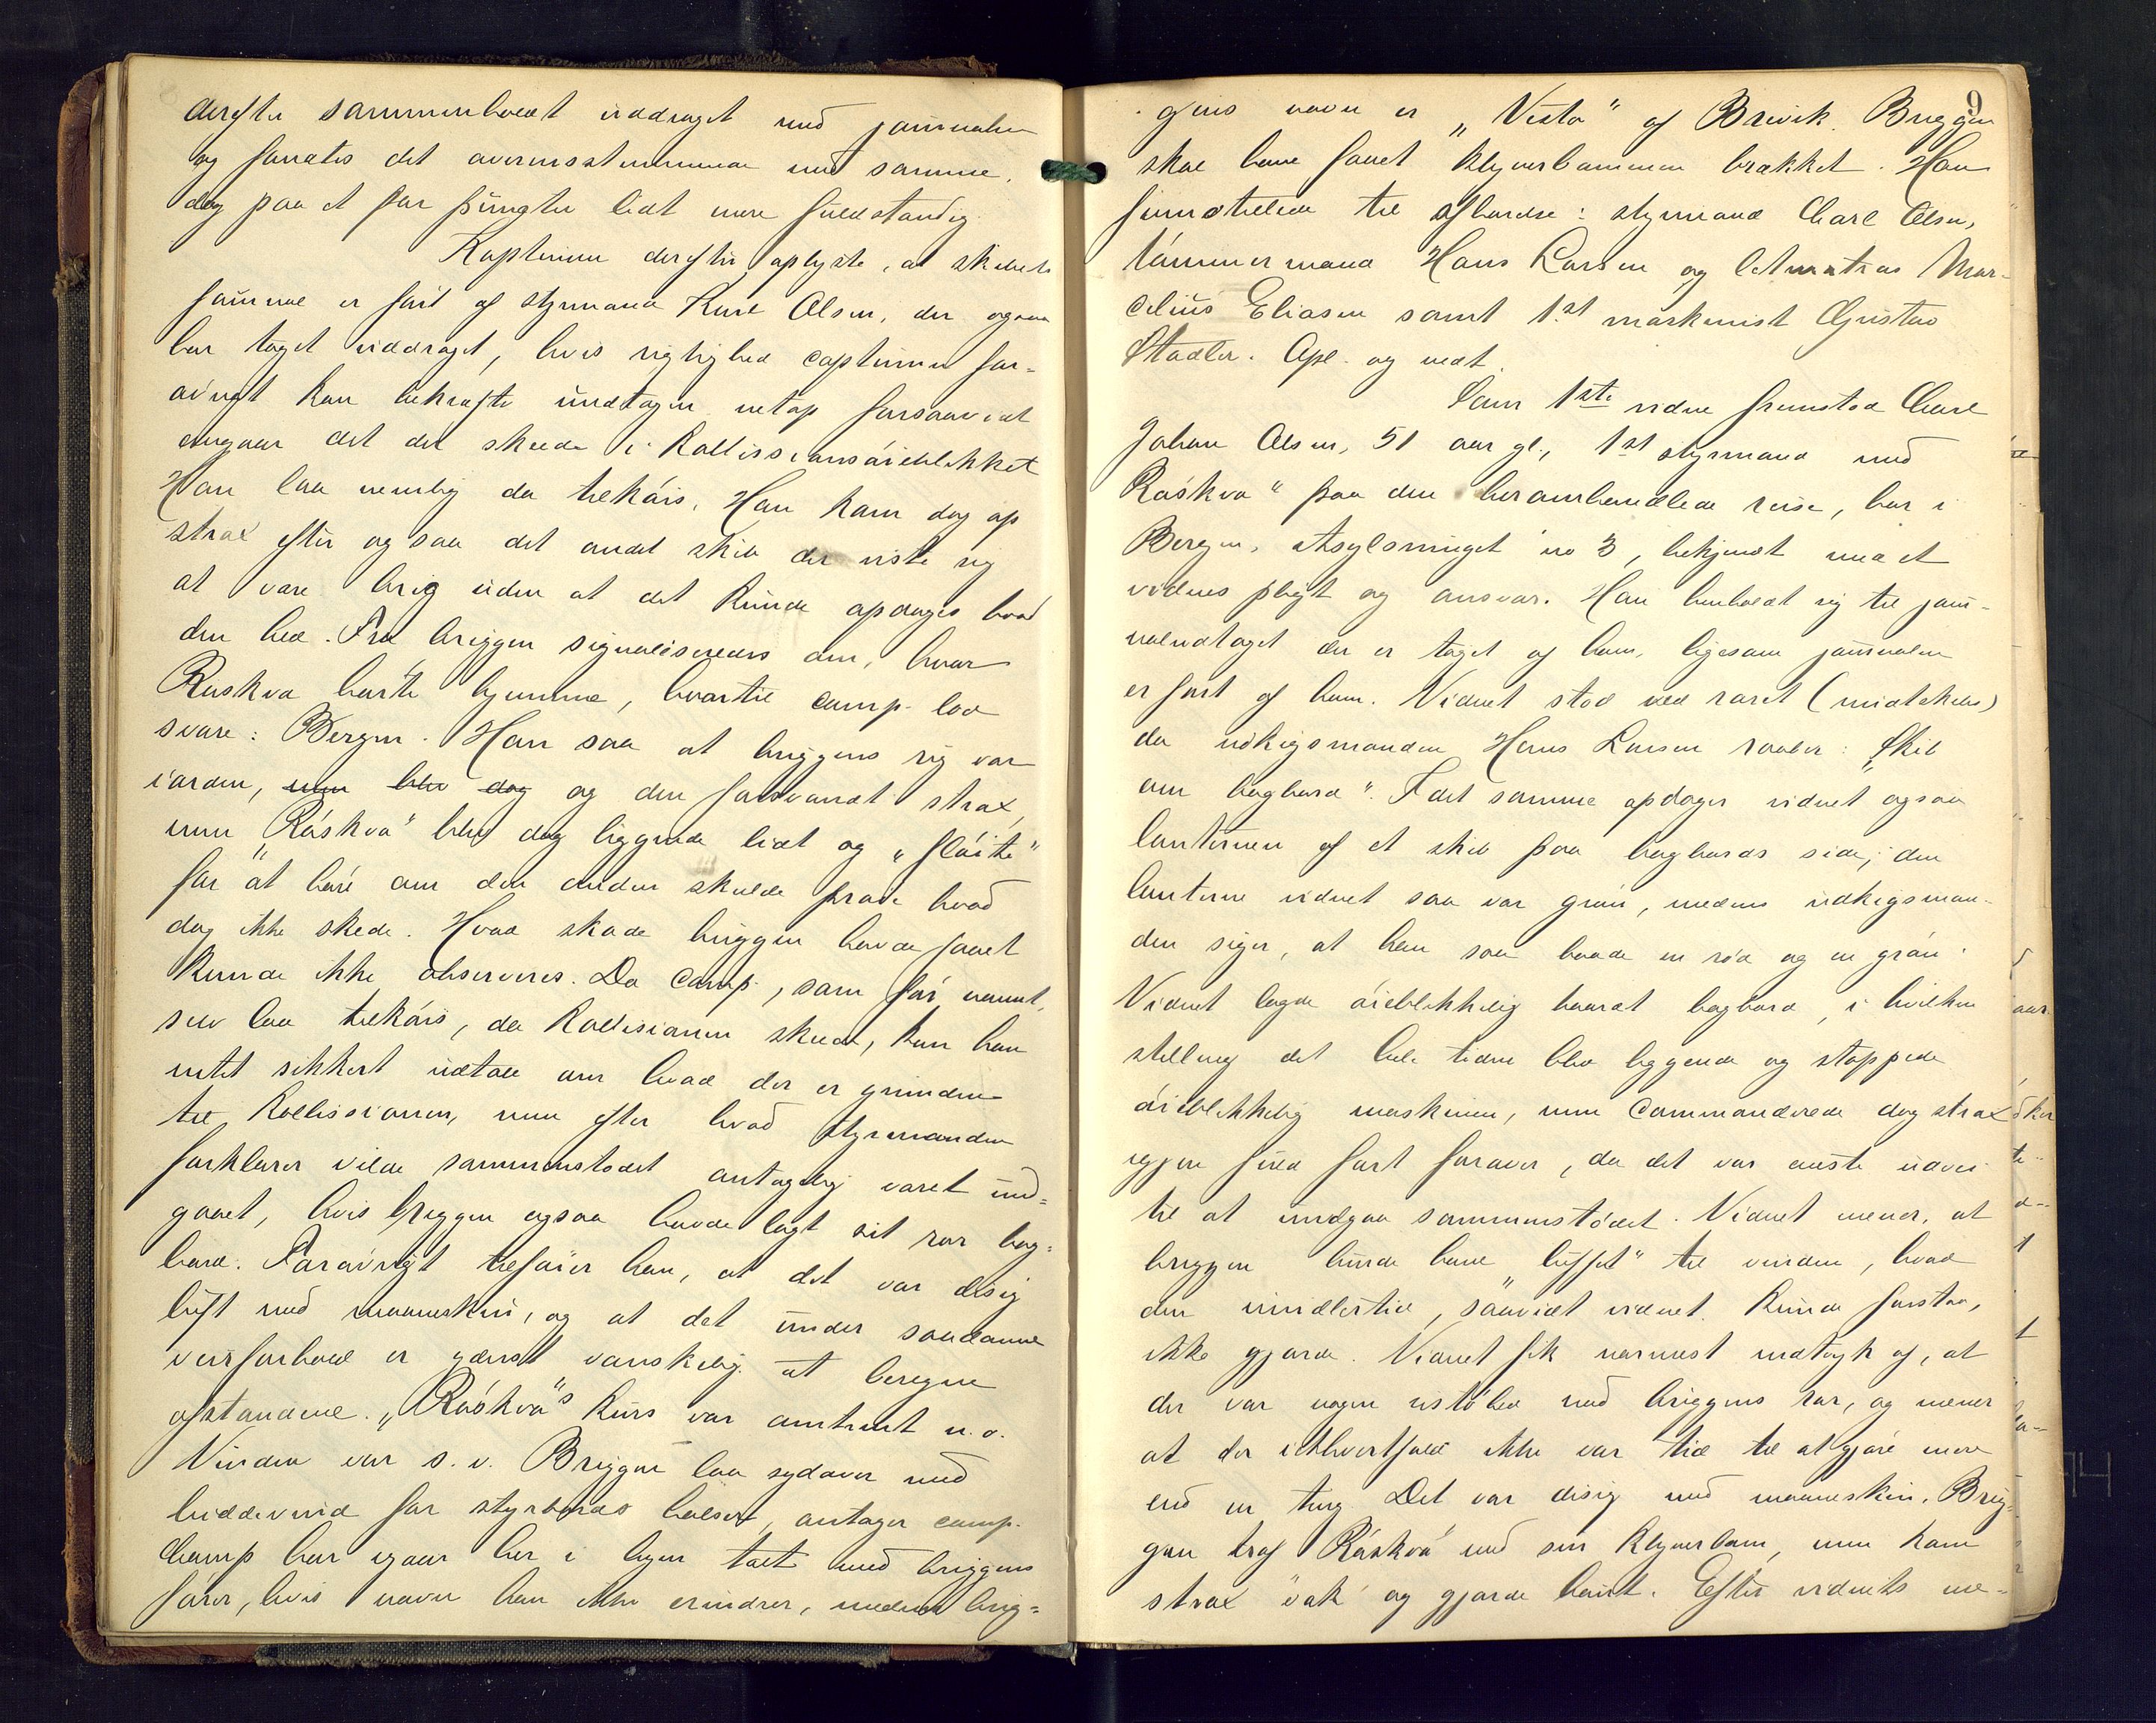 derefter sammenholdt uddraget med journalen
og fandtes det overensstemmende med samme,
dog paa et par punkter lidt mere fuldstændig.
Kapteinen derefter oplyste, at skibets
journal er ført af styrmand Karl Olsen, der ogsaa
har taget uddraget, hvis rigtighed capteinen for-
øvrigt kan bekræfte undtagen netop forsaavidt
angaar det der skede i kollissionsøieblikket
Han laa nemlig da tilkøis. Han kam dog op
strax efter og saa det andet skib der viste sig
at være brig uden at det kunde opdages hvad
den hed. Fra briggen signaliseredes om, hvor
Røskva hørte hjemme, hvortil comp. lod
svare: Bergen. Han saa at briggens rig var
iorden, men blev dog og den forsvandt strax,
men "Røskva" blev dog liggende lidt og "fløite"
for at høre om den anden skulde praie hvad
dog ikke skede. Hvad skade briggen havde faaet
kunde ikke observeres. Da comp., som før nævnt,
selv laa tilkøis, da kollisionen skede, kan han
intet sikkert udtale om hvad der er grunden
til kollissionen, men efter hvad styrmanden
forklarer vilde sammenstødet antagelig været und-
gaaet, hvis briggen ogsaa havde lagt sit ror bag-
bord. Forøvrigt tilføier han, at det var disig
luft med maaneskin, og at det under saadanne
veirforhold er yderst vanskelig at beregne
afstandene. "Røskva"s kurs var omtrent n.o.
Vinden var s.v. Briggen laa sydover med
bidevind for styrbords halser, antager comp.
Comp har igaar her i byen talt med briggens
fører, hvis navn han ikke erindrer, medens brig-
9
gens navn er "Vesta" af Brevik. Briggen
skal have faaet klyverbommen brækket. Han
fremstillede til afhørelse: styrmand Carl Olsen,
tømmermand Hans Larsen og letmatros Mar-
celius Eliasen samt 1st maskinist Gustav
Stadler. Opl. og vedt.
Som 1ste vidne fremstod Carl
Johan Olsen, 51 aar gl., 1st styrmand med
Røskva" paa den heromhandlede reise, bor i
Bergen, Asylsmuget no 3, bekjendt med et
vidnes pligt og ansvar. Han henholdt sig til jour-
naludtoget der er taget af ham, ligesom journalen
er ført af ham. Vidnet stod ved roret (midtskibs)
da udkigsmanden Hans Larsen raaber: "Skib
om bagbord". I det samme opdager vidnet ogsaa
lanternen af et skib paa bagbords side; den
lanterne vidnet saa var grøn, medens udkigsman-
den siger, at han saa baade en rød og en grøn.
Vidnet lagde øieblikkelig haardt bagbord, i hvilken
stilling det hele tiden blev liggende og stoppede
øieblikkelig maskinen, men commanderede dog strax
igjen fuld fart forover, da det var eneste udvei
til at undgaa sammenstødet. Vidnet mener, at
briggen burde have "luffet" til vinden, hvad
den imidlertid, saavidt vidnet kunde forstaa,
ikke gjorde. Vidnet fik nærmest indtryk af, at
der var nogen ustøhed med briggens ror, og mener
at der ialthvertfald ikke var tid til at gjøre mere
end en ting. Det var disig med maaneskin. Brig-
gen traf "Røskva" med sin klyverbom, men kom
strax væk og gjorde bout. Efter vidnets me-